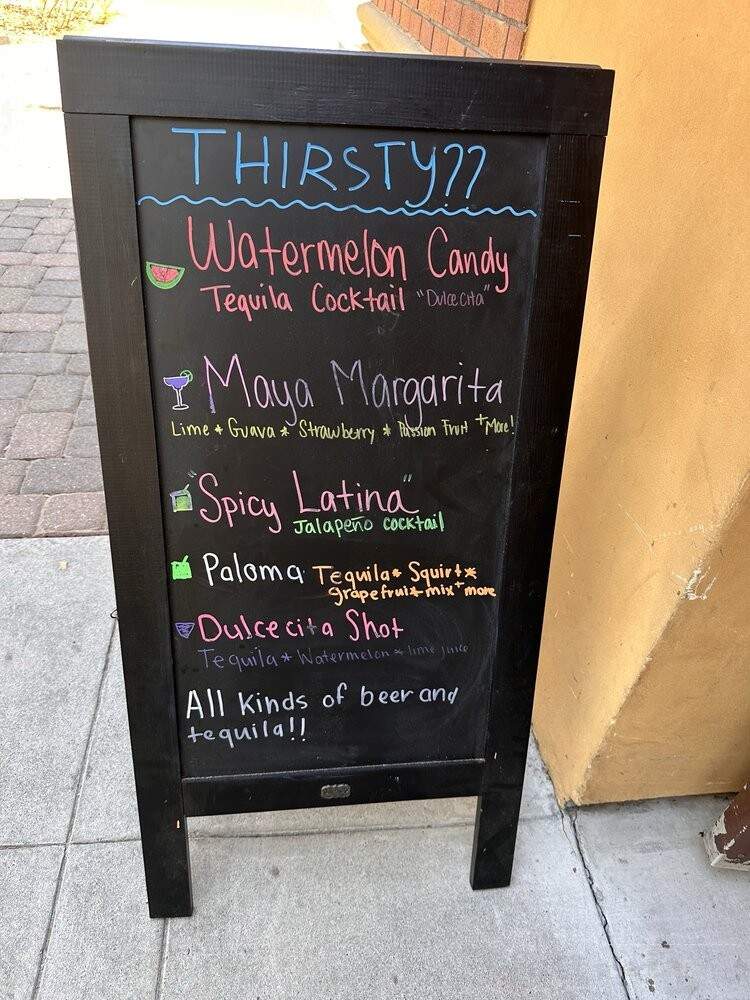 THIRSTY??
Watermelon Candy
Tequila Cocktail "Dulcecita"
Maya Margarita
Lime * Guava * Strawberry * Passion Fruit + More!
"Spicy Latina"
Jalapeño cocktail
Paloma Tequila * Squirt *
grapefruit mix + more
Dulcecita Shot
Tequila * Watermelon * lime juice
All kinds of beer and
tequila!!